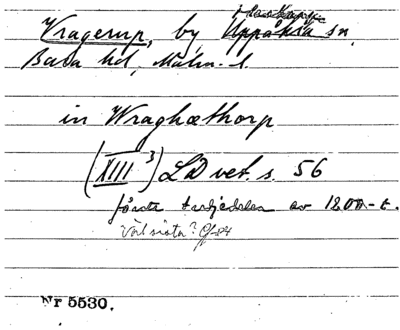 Vragerup, by Uppåkra sn,
Bara hd, Malm. l.
in Wraghæthorp
(XIII 3) LD vet. s. 56
första tredjedelen av 1200-t.
Nr 5530.